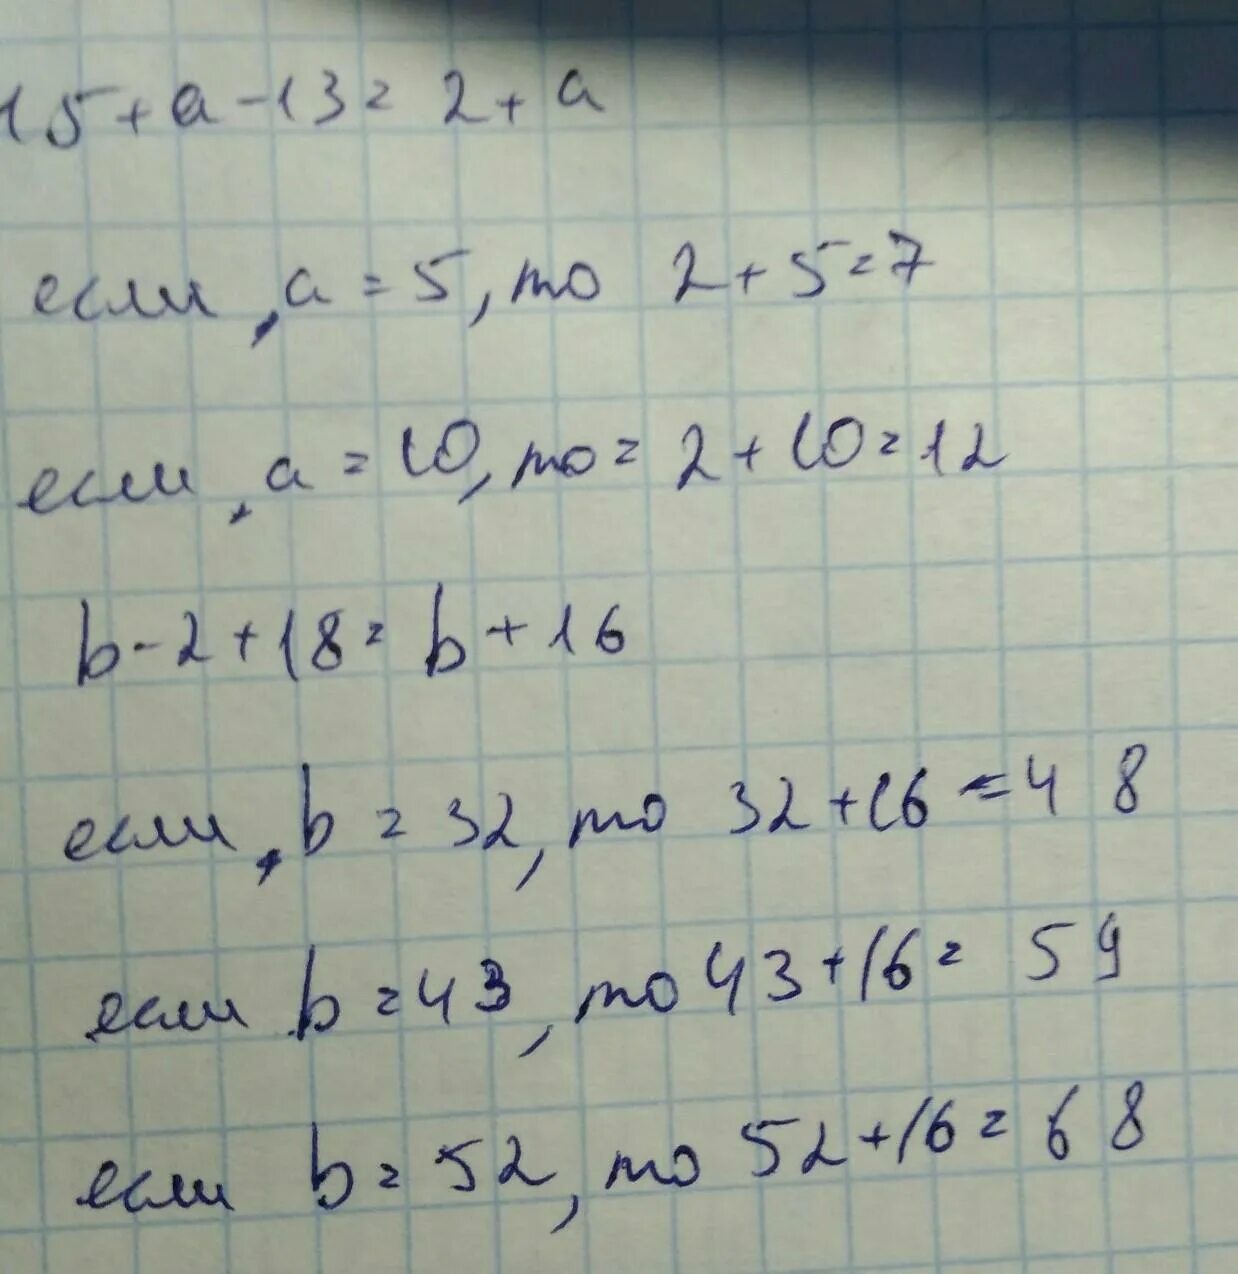 15+a-13=2+a
если, a=5, то 2+5=7
если, a=10, то=2+10=12
b-2+18=b+16
если, b=32, то 32+16=48
если b=43, то 43+16=59
если b=52, то 52+16=68